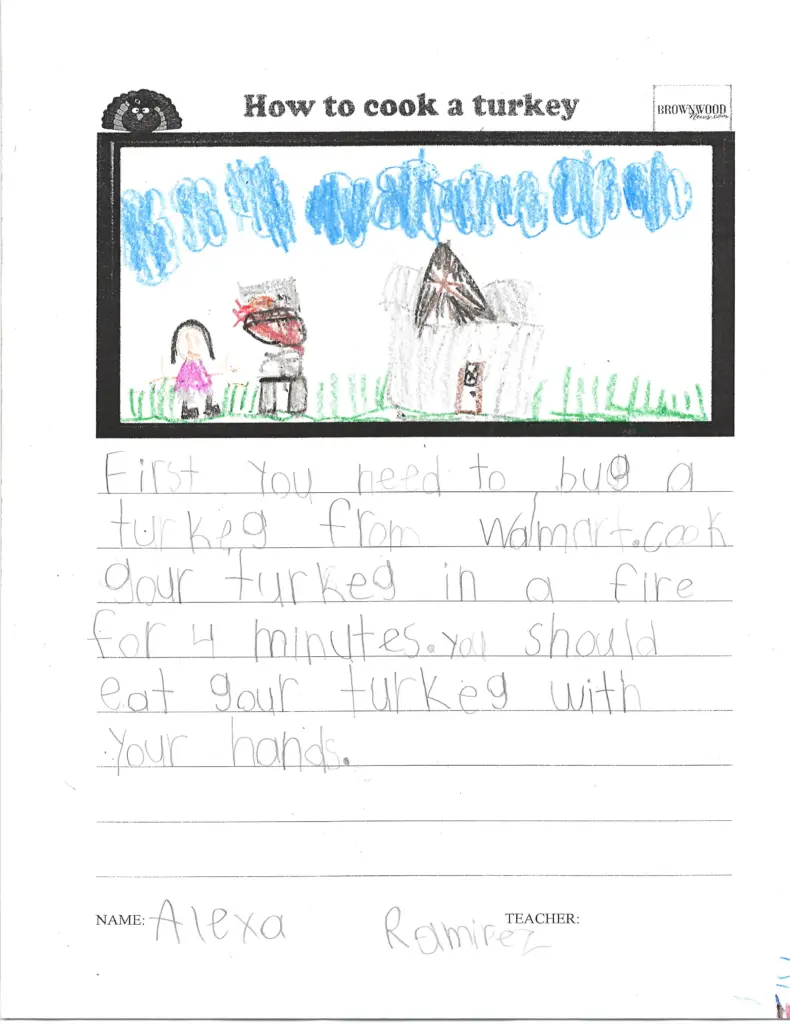 How to cook a turkey
BROWNWOOD
News.com
First You need to bug a
turkeg from Walmart.cook
gour turkeg in a fire
for 4 minutes.you should
eat gour turkeg with
Your hands.
NAME: Alexa Ramirez TEACHER: